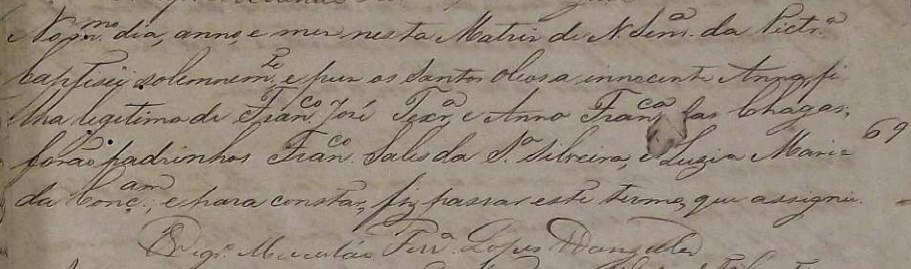 No mmo. dia, anno, e mez nesta Matriz de N. Senra. da Victra.
baptisei solemneme. e puz os santos oleos a innocente Anna, fi
lha legitima de Franco. José Teixra. e Anna Franca. das Chagas;
forão padrinhos Franco. Sales da Sa. Silveira, e Luzia Maria
da Conçam., e para constar, fiz passar este termo, que assignei.
69
Ferra. Lopes